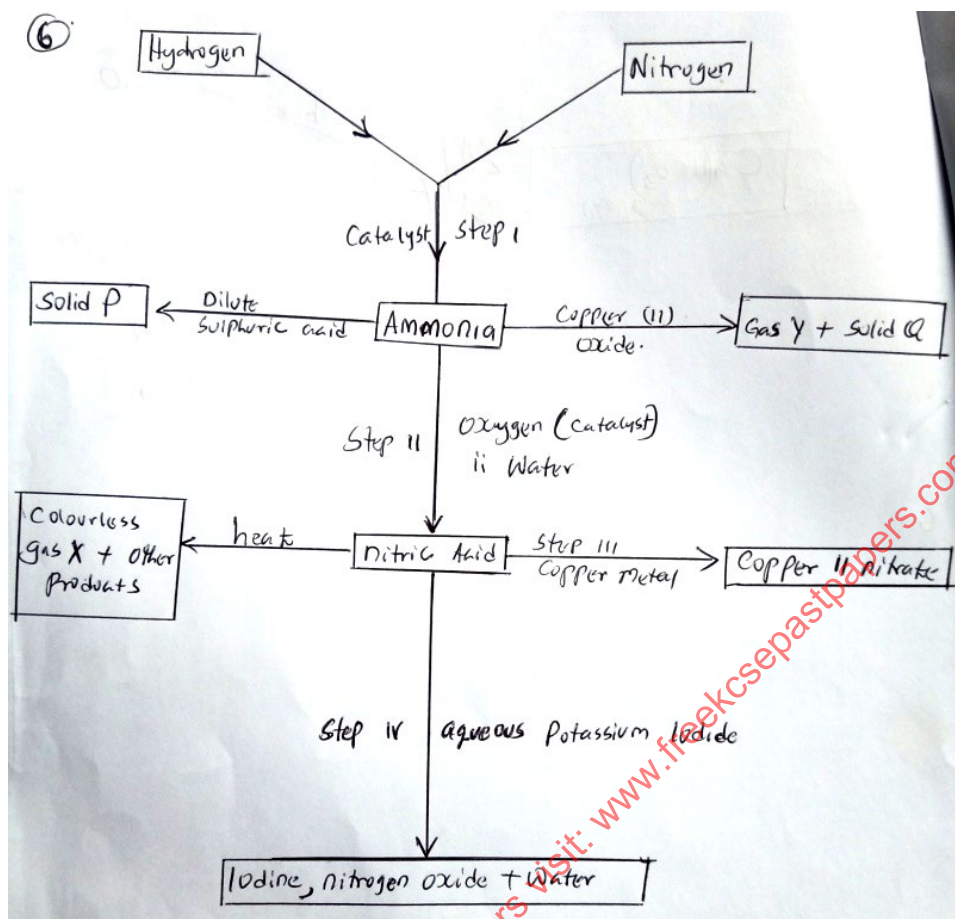 6
Hydrogen
Nitrogen
Catalyst Step I
Solid P
Dilute
Sulphuric acid
Ammonia
Copper (II)
Oxide.
Gas Y + Solid Q
Step II
Oxygen (Catalyst)
ii Water
Colourless
gas X + other
Products
heat
nitric Acid
Step III
Copper Metal
Copper II nitrate
Step IV aqueous Potassium Iodide
Iodine, nitrogen oxide + Water
rs visit: www.freekcsepastpapers.com